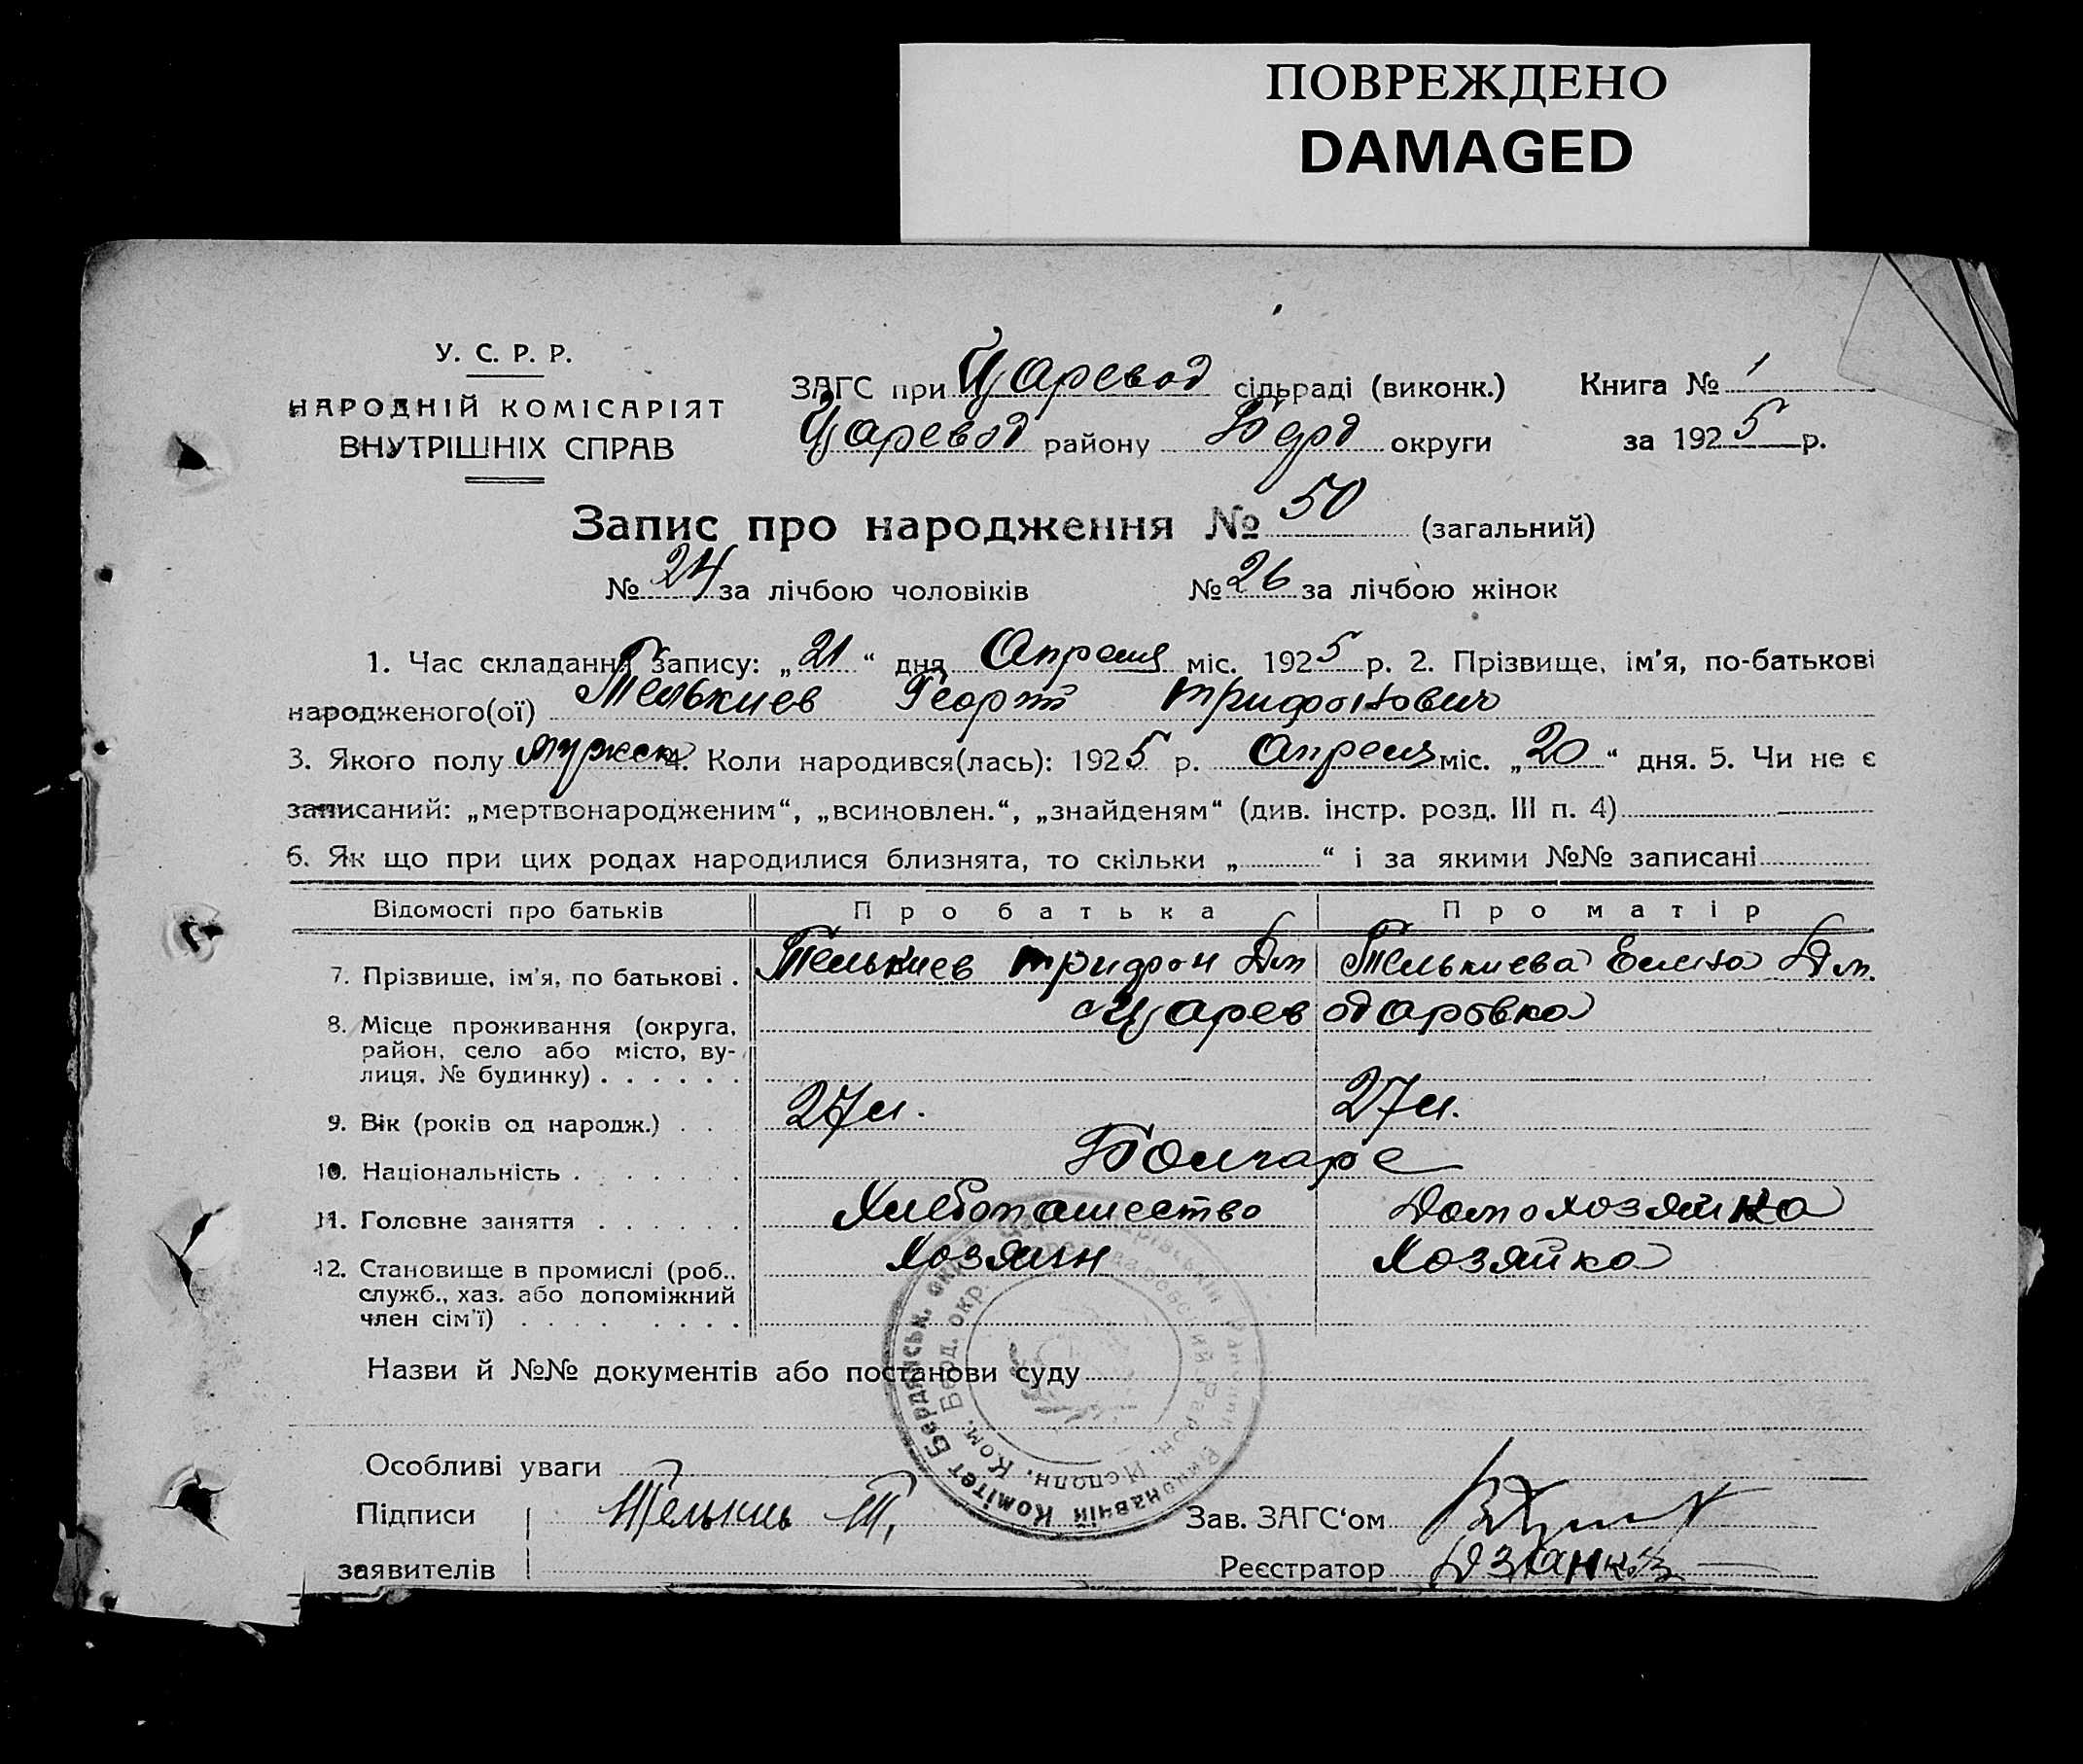 ПОВРЕЖДЕНО
DAMAGED
У. С. Р. Р.
НАРОДНІЙ КОМІСАРІЯТ
ВНУТРІШНІХ СПРАВ
ЗАГС при Царевод сільраді (виконк.) Книга № 1
Царевод району Берд округи за 1925 р.
Запис про народження № 50 (загальний)
№ 24 за лічбою чоловіків № 26 за лічбою жінок
1. Час складання запису: „21“ дня Апреля міс. 1925 р. 2. Прізвище, ім'я, по-батькові
народженого(ої) Телькиев Георги Трифонович
3. Якого полу мужск 4. Коли народився(лась): 1925 р. Апреля міс. „20“ дня. 5. Чи не є
записаний: „мертвонародженим“, „всиновлен.“, „знайденям“ (див. інстр. розд. III п. 4)
6. Як що при цих родах народилися близнята, то скільки „ “ і за якими №№ записані
Відомості про батьків Про батька Про матір
7. Прізвище, ім'я, по батькові . Телькиев Трифон Дм Телькиева Елена Дм.
8. Місце проживання (округа, с Царев одаровка
район, село або місто, ву-
лиця, № будинку) . . . . . .
9. Вік (років од народж.) . . . 27 л. 27 л.
10. Національність . . . . . . . Болгаре
11. Головне заняття . . . . . . Хлебопашество Домохозяйка
12. Становище в промислі (роб., Хозяин Хозяйка
служб., хаз. або допоміжний
член сім'ї) . . . . . . . .
Назви й №№ документів або постанови суду
Особливі уваги
Підписи Телькиев Т. Зав. ЗАГС'ом
заявителів Реєстратор
Виконавчій Комітет Бердянськ. окр.
Исполн. Ком. Берд. окр.